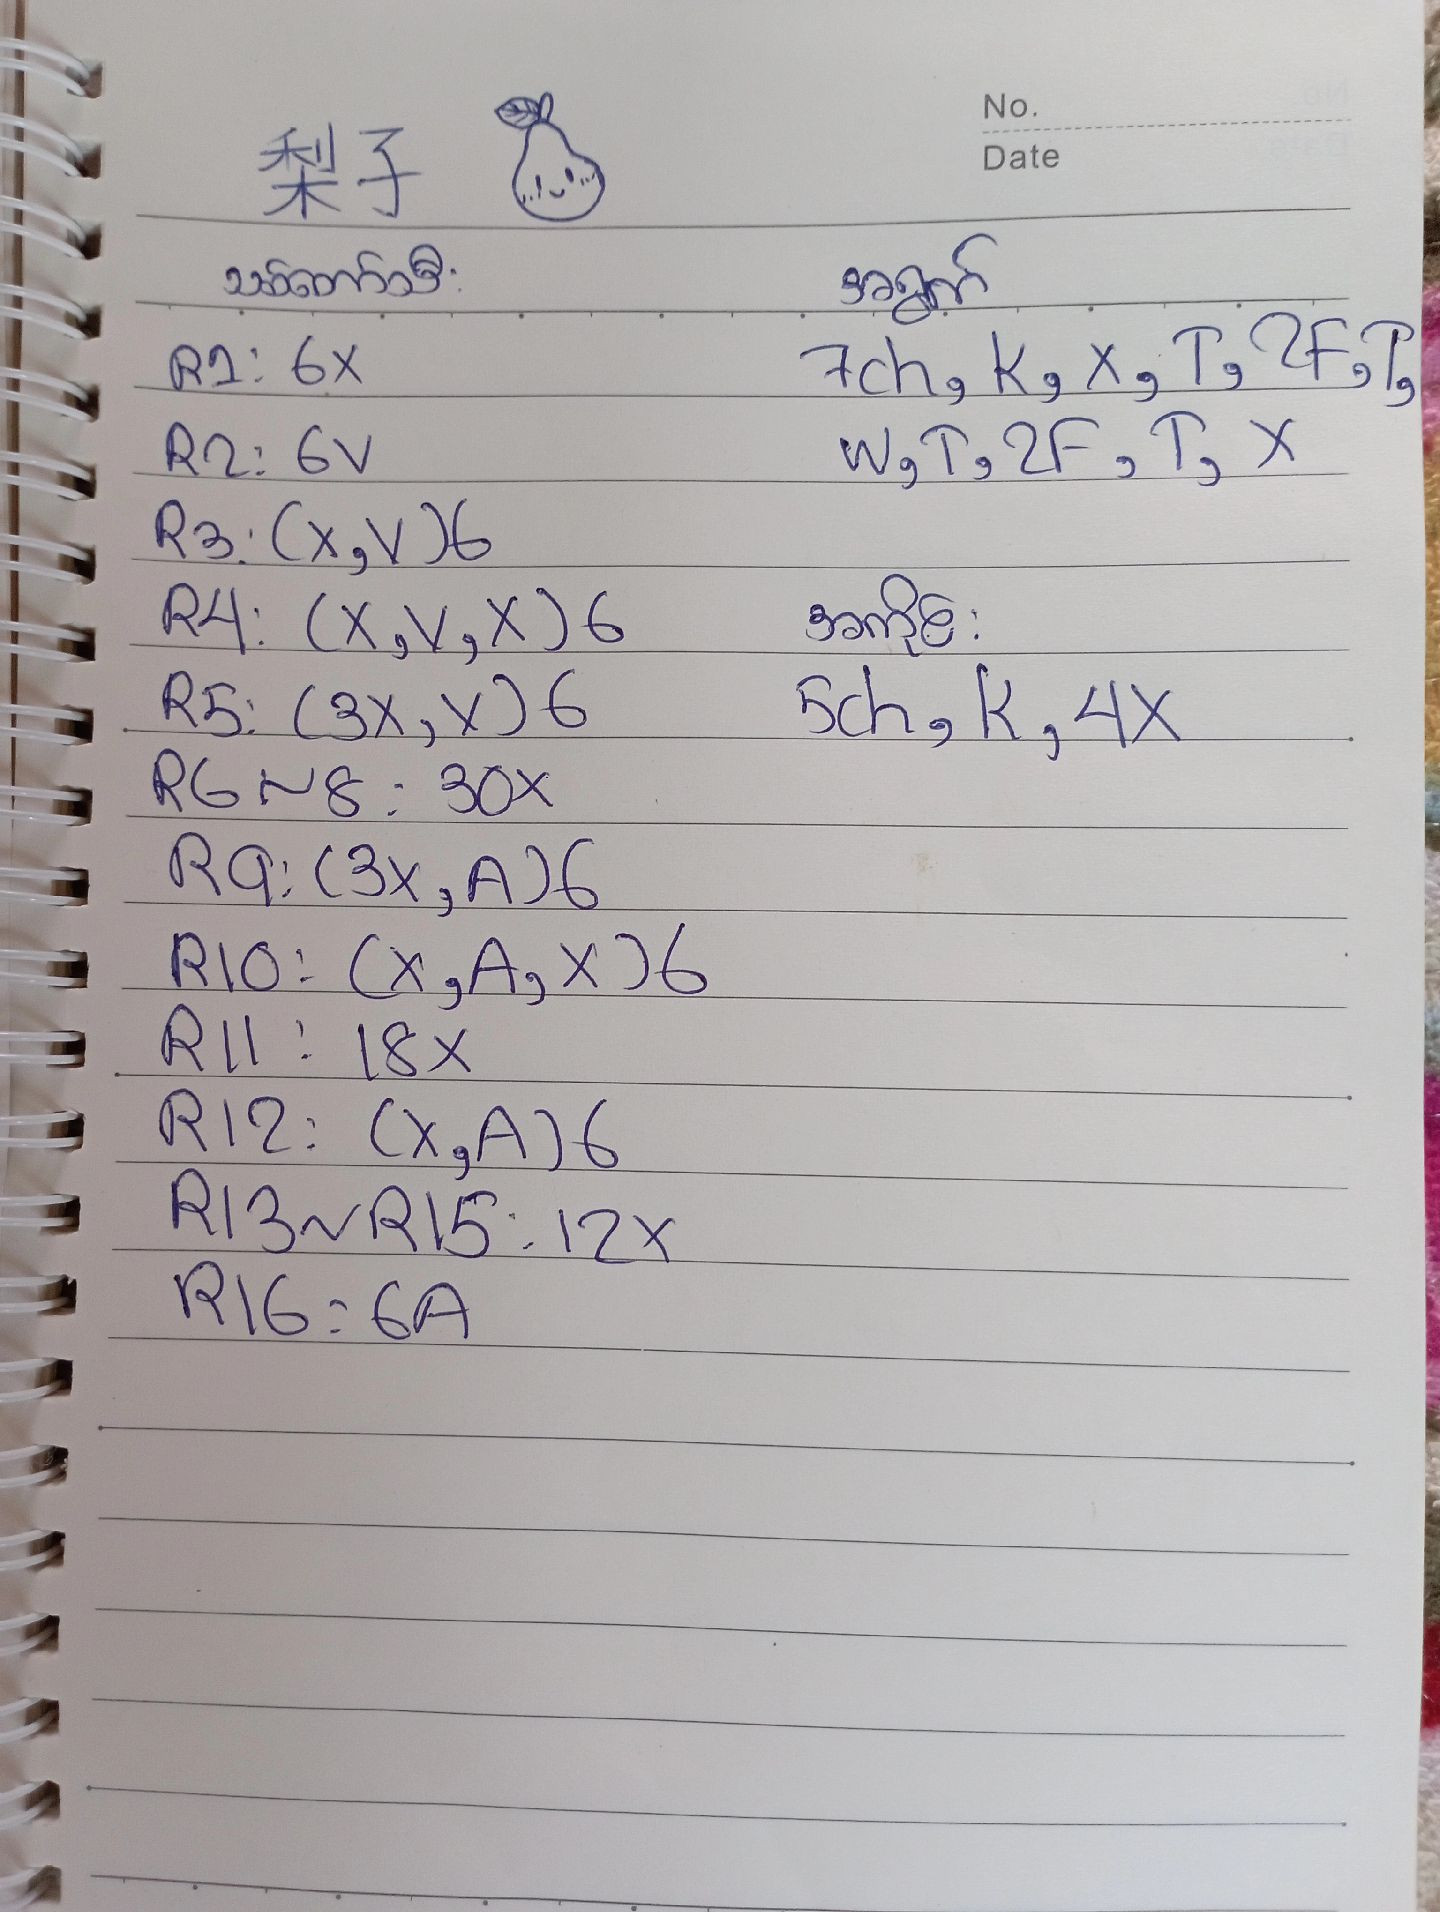 No.
Date
梨子
သစ်တော်သီး
R1: 6X
R2: 6V
R3: (X,V)6
R4: (X,V,X)6
R5: (3X,V)6
R6~8: 30X
R9: (3X,A)6
R10: (X,A,X)6
R11: 18X
R12: (X,A)6
R13~R15: 12X
R16: 6A
အရွက်
7ch, K, X, T, 2F, T,
W, T, 2F, T, X
အကိုင်း
5ch, K, 4X